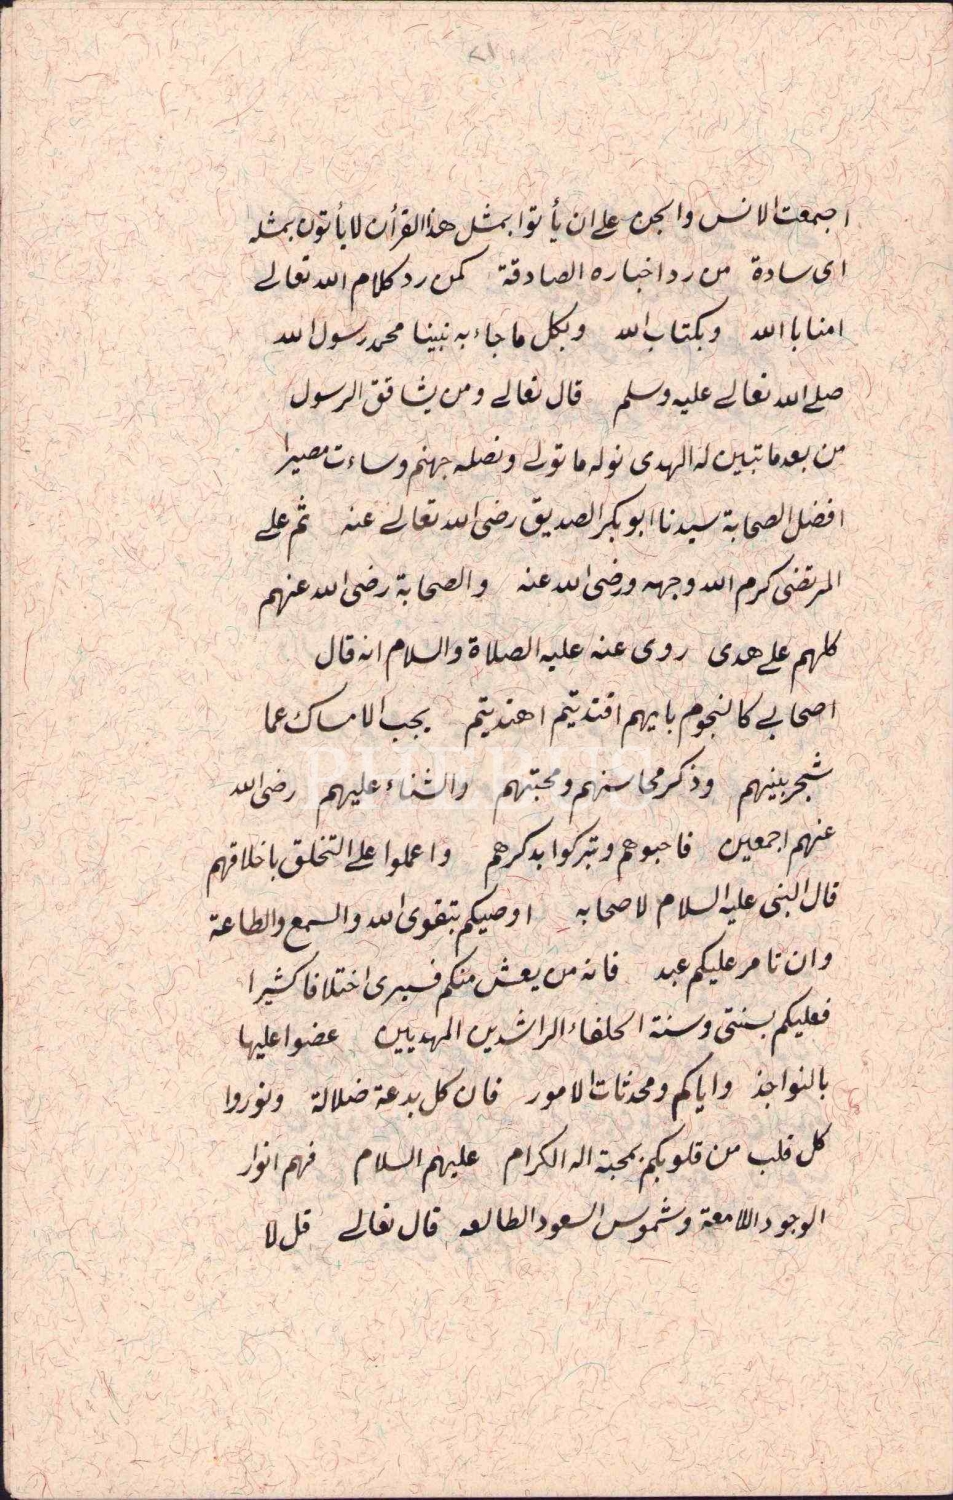 ٢١
اجمعت الانس والجن على ان يأتوا بمثل هذا القرأن لا يأتون بمثله
اى سادة من رد اخباره الصادقة كمن رد كلام الله تعالى
امنا باالله وبكتاب الله وبكل ما جاء به نبينا محمد رسول الله
صلى الله تعالى عليه وسلم قال تعالى ومن يشاقق الرسول
من بعد ما تبين له الهدى نوله ما تولى ونصله جهنم وساءت مصيرا
افضل الصحابة سيدنا ابو بكر الصديق رضى الله تعالى عنه ثم على
المرتضى كرم الله وجهه ورضى الله عنه والصحابة رضى الله عنهم
كلهم على هدى روى عنه عليه الصلاة والسلام انه قال
اصحابى كالنجوم بايهم اقتديتم اهتديتم يجب الامساك عما
شجر بينهم وذكر محاسنهم ومحبتهم والثناء عليهم رضى الله
عنهم اجمعين فاحبوهم وتبركوا بذكرهم واعملوا على التخلق باخلاقهم
قال النبى عليه السلام لاصحابه اوصيكم بتقوى الله والسمع والطاعة
وان تامر عليكم عبد فانه من يعش منكم فسيرى اختلافا كثيرا
فعليكم بسنتى وسنة الخلفاء الراشدين المهديين عضوا عليها
بالنواجذ واياكم ومحدثات الامور فان كل بدعة ضلالة ونوروا
كل قلب من قلوبكم بمحبة اله الكرام عليهم السلام فهم انوار
الوجود اللامعة وشموس السعود الطالعه قال تعالى قل لا
PHEBUS